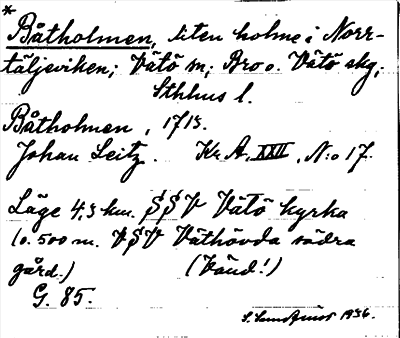 * Båtholmen, liten holme i Norr-
täljeviken; Vätö sn; Bro o. Vätö skg;
Sthlms l.
Båtholmen, 1715.
Johan Leitz. Kr. A. XXII, N:o 17.
Läge 4,3 km. SSV Vätö kyrka
(o. 500 m. VSV Väthövda södra
gård.) (Vänd!)
G. 85.
S. 1936.